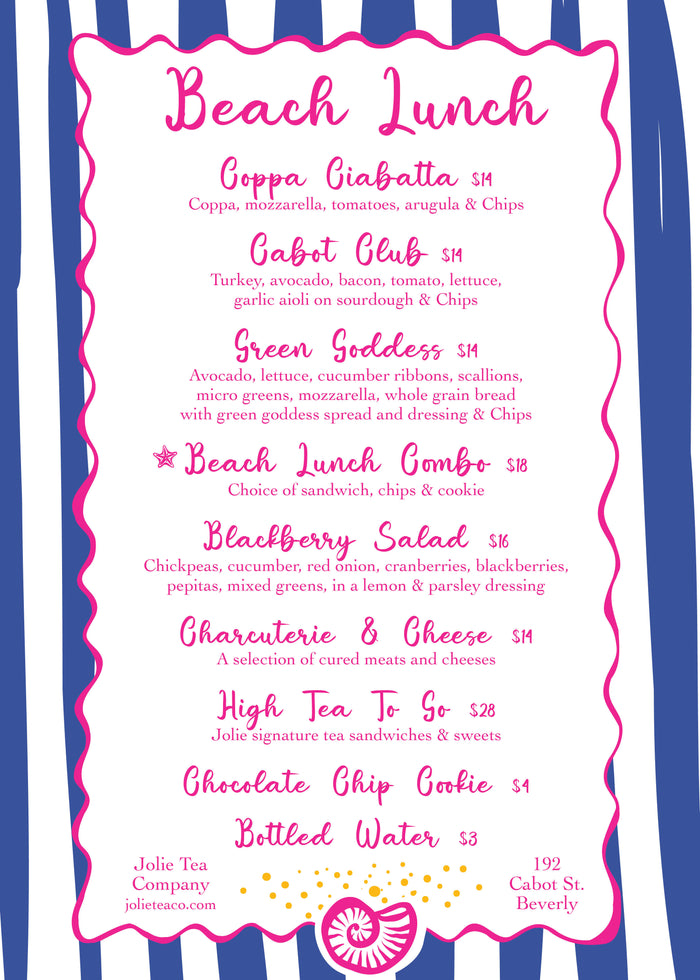 Beach Lunch
Coppa Ciabatta $14
Coppa, mozzarella, tomatoes, arugula & Chips
Cabot Club $14
Turkey, avocado, bacon, tomato, lettuce,
garlic aioli on sourdough & Chips
Green Goddess $14
Avocado, lettuce, cucumber ribbons, scallions,
micro greens, mozzarella, whole grain bread
with green goddess spread and dressing & Chips
Beach Lunch Combo $18
Choice of sandwich, chips & cookie
Blackberry Salad $16
Chickpeas, cucumber, red onion, cranberries, blackberries,
pepitas, mixed greens, in a lemon & parsley dressing
Charcuterie & Cheese $14
A selection of cured meats and cheeses
High Tea To Go $28
Jolie signature tea sandwiches & sweets
Chocolate Chip Cookie $4
Bottled Water $3
Jolie Tea
Company
jolieteaco.com
192
Cabot St.
Beverly